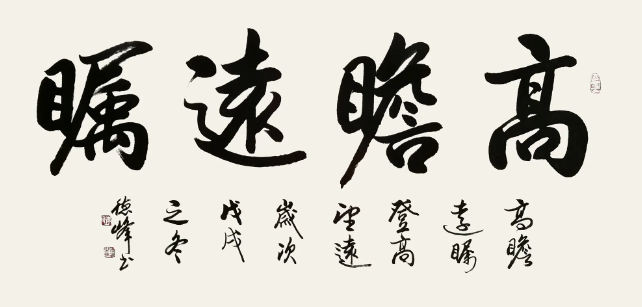 高瞻遠矚
高瞻
遠矚
登高
望遠
歲次
戊戌
之冬
德峰书